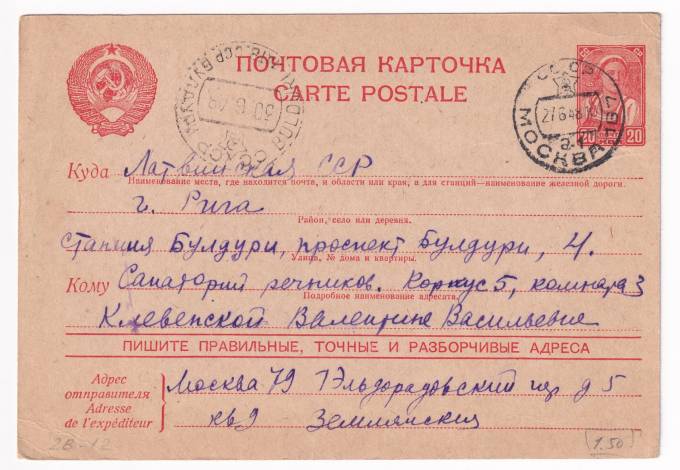 ПОЧТОВАЯ КАРТОЧКА
CARTE POSTALE
СССР
27 6 48
МОСКВА
20 20
30 6 48
Куда Латвийская ССР
Наименование места, где находится почта, и области или края, а для станций—наименование железной дороги.
г. Рига
Район, село или деревня.
станция Булдури, проспект Булдури, 4.
Улица, № дома и квартиры.
Кому Санаторий речников. Корпус 5, комната 3
Подробное наименование адресата.
Валентине Васильевне
ПИШИТЕ ПРАВИЛЬНЫЕ, ТОЧНЫЕ И РАЗБОРЧИВЫЕ АДРЕСА
Адрес отправителя
Adresse de l'expéditeur
Москва 79 Эльдорадовский пер д 5
кв 9
2В-12
1.50